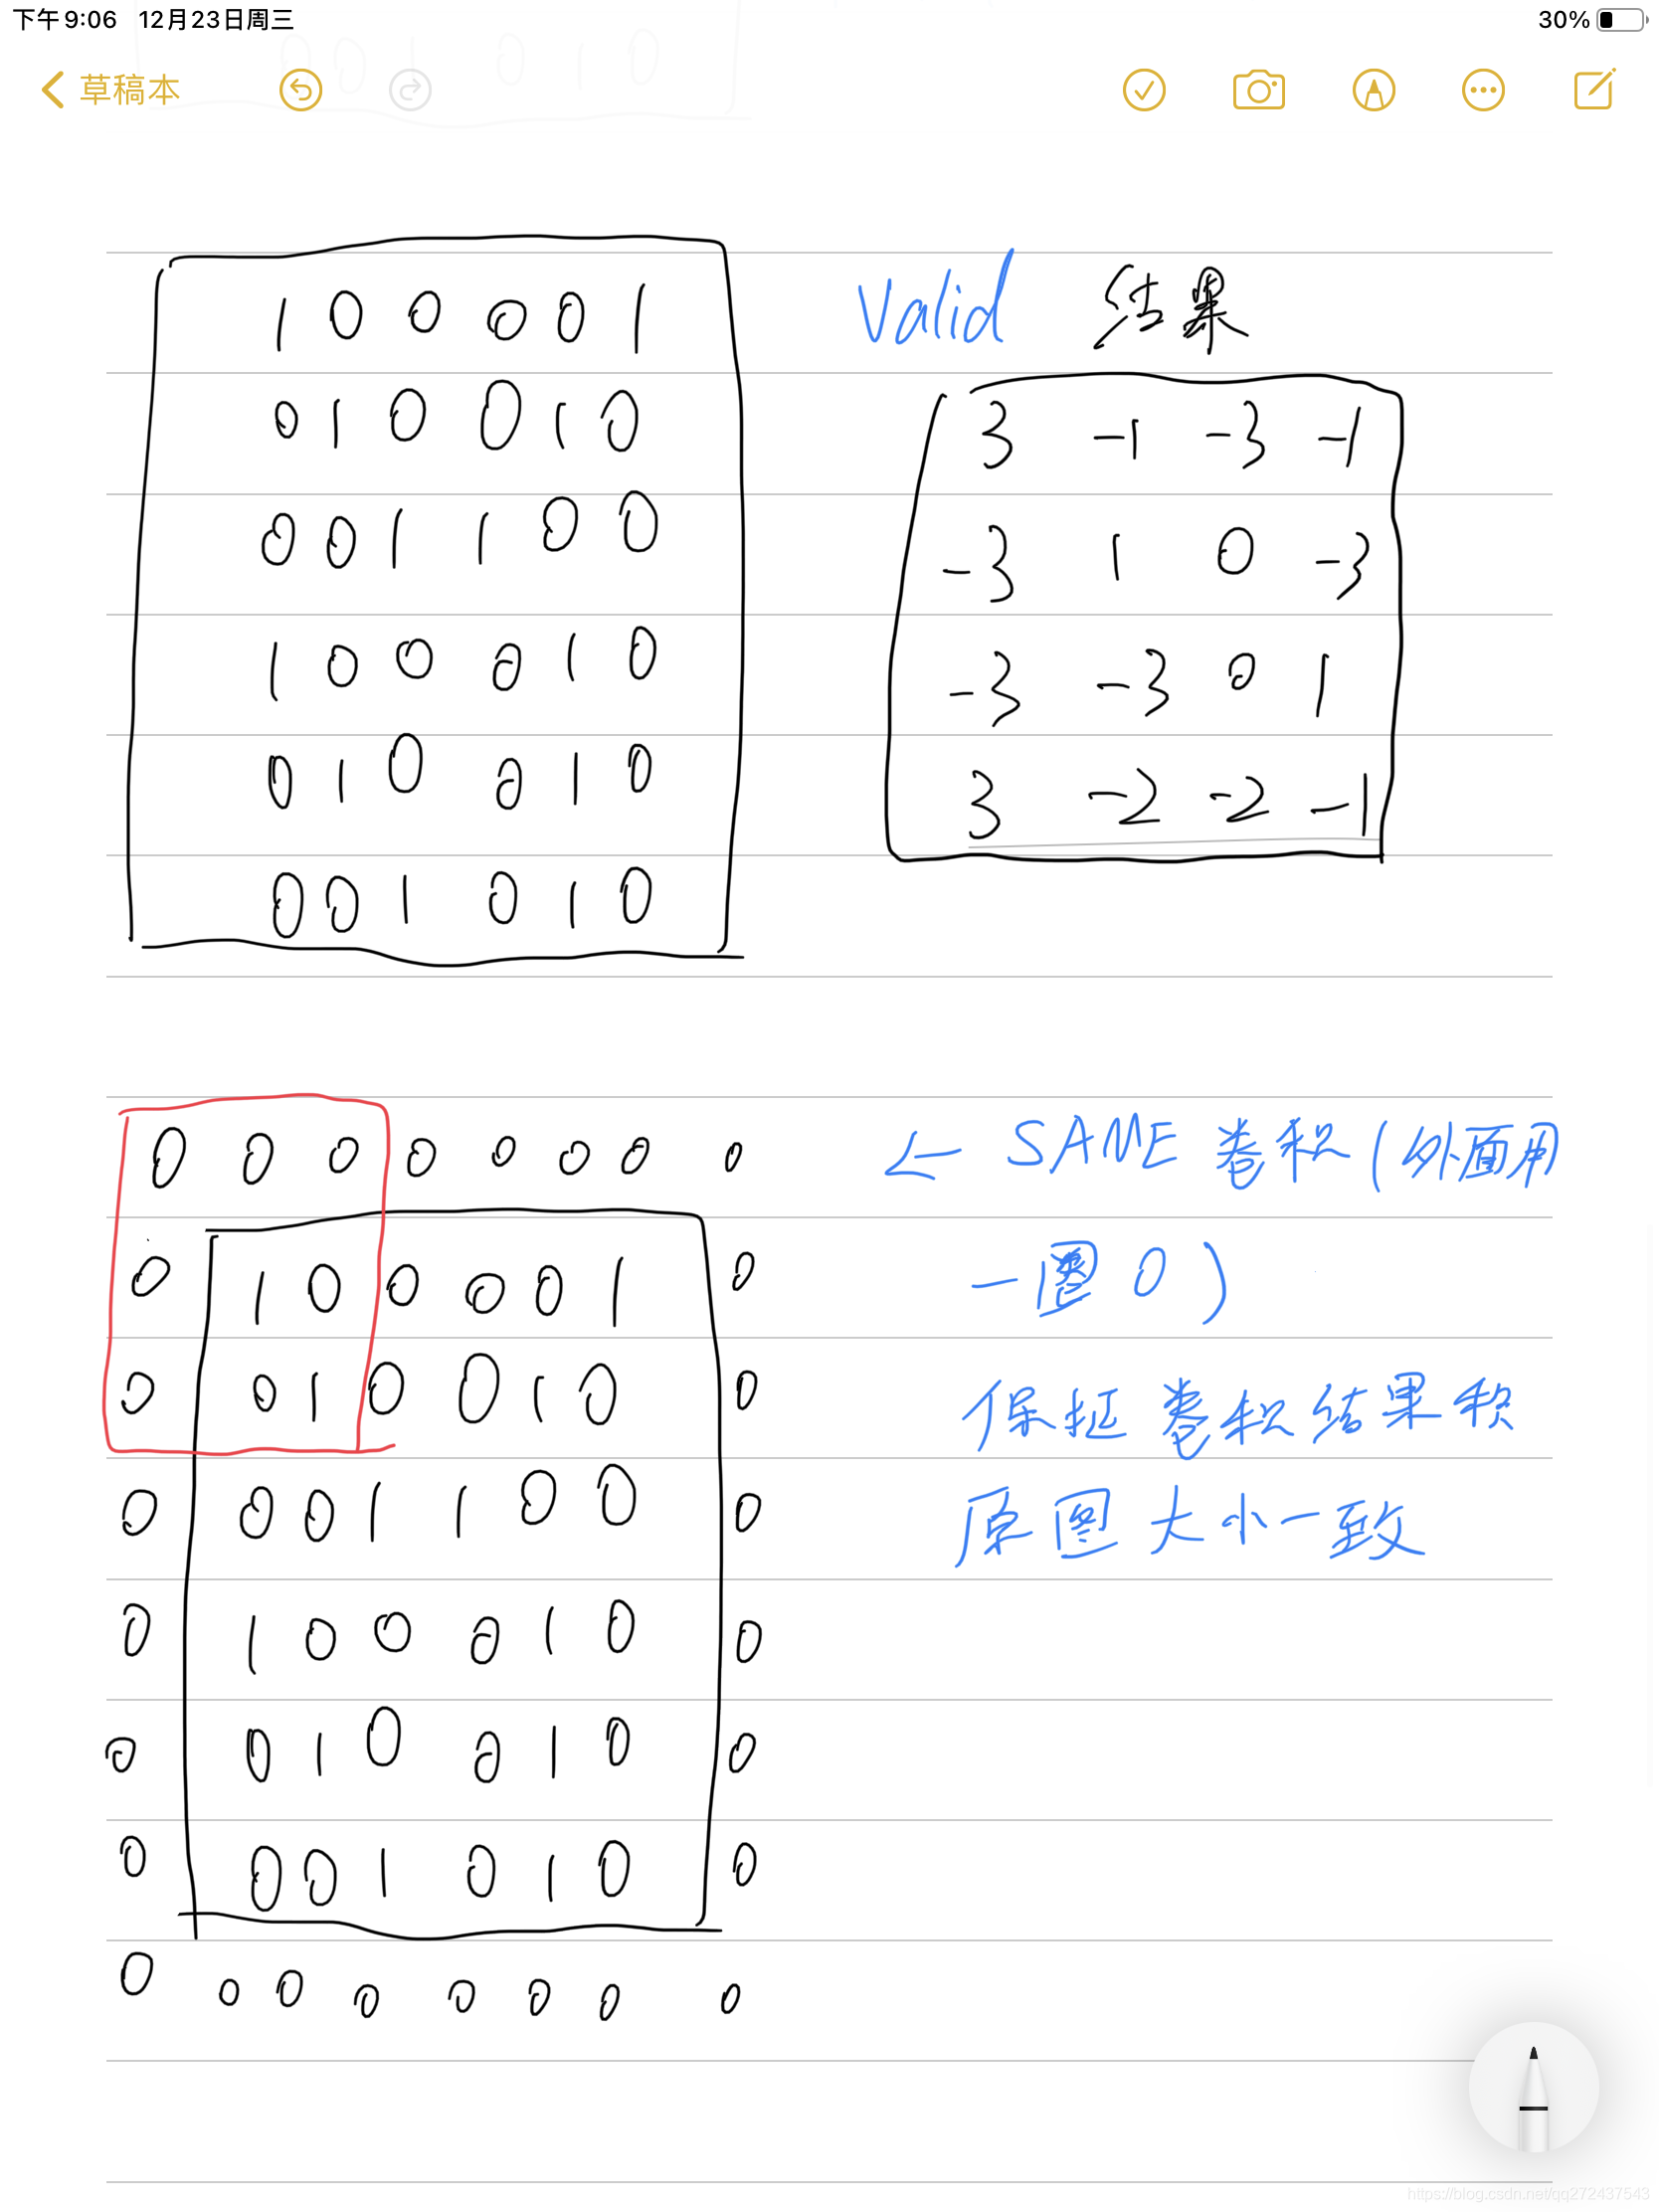 下午9:06 12月23日周三 30%
草稿本
1 0 0 0 0 1
0 1 0 0 1 0
0 0 1 1 0 0
1 0 0 0 1 0
0 1 0 0 1 0
0 0 1 0 1 0
Valid 结果
3 -1 -3 -1
-3 1 0 -3
-3 -3 0 1
3 -2 -2 -1
0 0 0 0 0 0 0 0
0 1 0 0 0 0 1 0
0 0 1 0 0 1 0 0
0 0 0 1 1 0 0 0
0 1 0 0 0 1 0 0
0 0 1 0 0 1 0 0
0 0 0 1 0 1 0 0
0 0 0 0 0 0 0 0
← SAME 卷积(外面用
一圈0)
保证卷积结果和
原图大小一致
https://blog.csdn.net/qq272437543